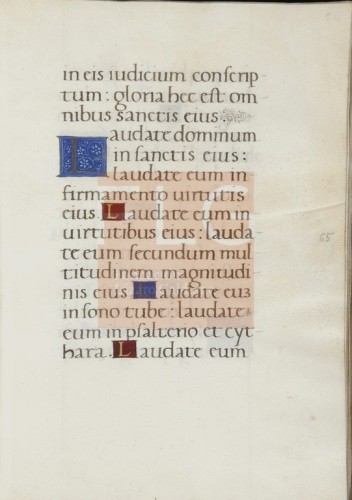 in eis iudicium conscrip-
tum: gloria hec est om
nibus sanctis eius.
Laudate dominum
in sanctis eius:
laudate eum in
firmamento uirtutis
eius. Laudate eum in
uirtutibus eius: lauda
te eum secundum mul
titudinem magnitudi
nis eius. Laudate euȝ
in sono tube: laudate
eum in psalterio et cyt
hara. Laudate eum
65